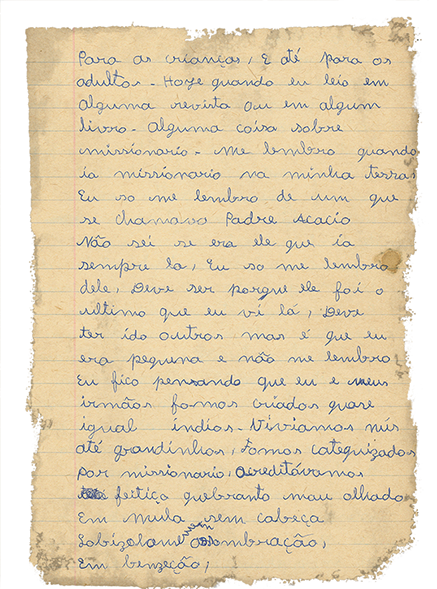 Para as crianças, E até para os
adultos - Hoje quando eu leio em
alguma revista ou em algum
livro - Alguma coisa sobre
missionario - Me lembro quando
ia missionario na minha terra
Eu so me lembro de um que
se chamava Padre Acacio
Não sei se era ele que ia
sempre la, Eu so me lembro
dele, Deve ser porque ele foi o
ultimo que eu vi lá, Deve
ter ido outros mas é que eu
era pequena e não me lembro
Eu fico pensando que eu e meus
irmãos fomos criados quase
igual indios - Viviamos nús
até grandinhos, Fomos catequizados
por missionario, Acreditávamos
feitiço quebranto mau olhado
Em mula sem cabeça
Lobizolame em assombração,
Em benzeção,